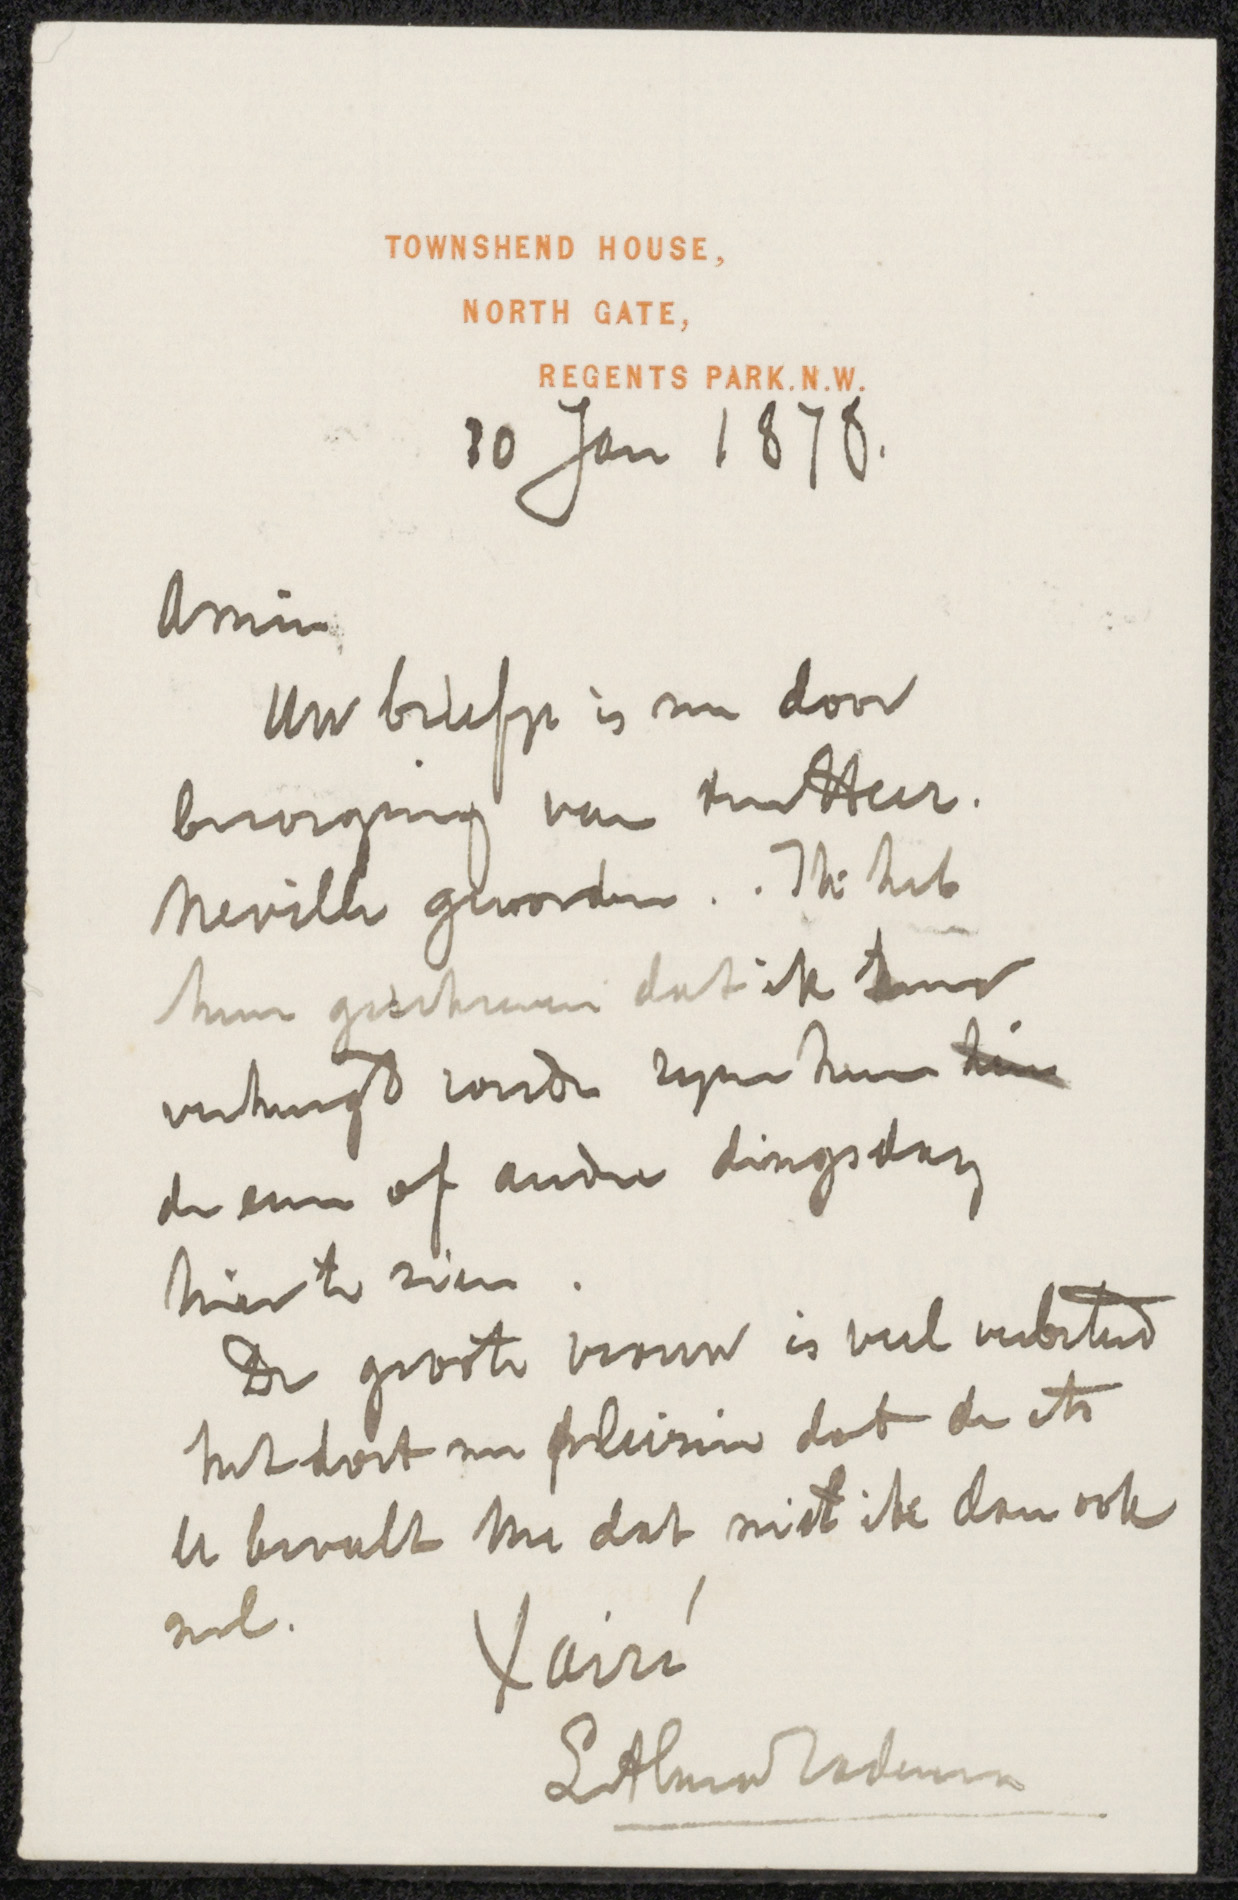 TOWNSHEND HOUSE,
NORTH GATE,
REGENTS PARK.N.W.
30 Jan 1878.
Amice
Uw briefje is nu door
bezorging van den Heer.
Neville geworden.. Ik heb
hun geschreven dat ik zeer
verheugd zoude zijn hun
de eene of andre dingsdag
hier te zien.
De groote vrouw is veel verbeterd
het doet me pleizier dat de ets
U bevalt Me dat niet ik dan ook
zal.
Xairé
L Alma Tadema